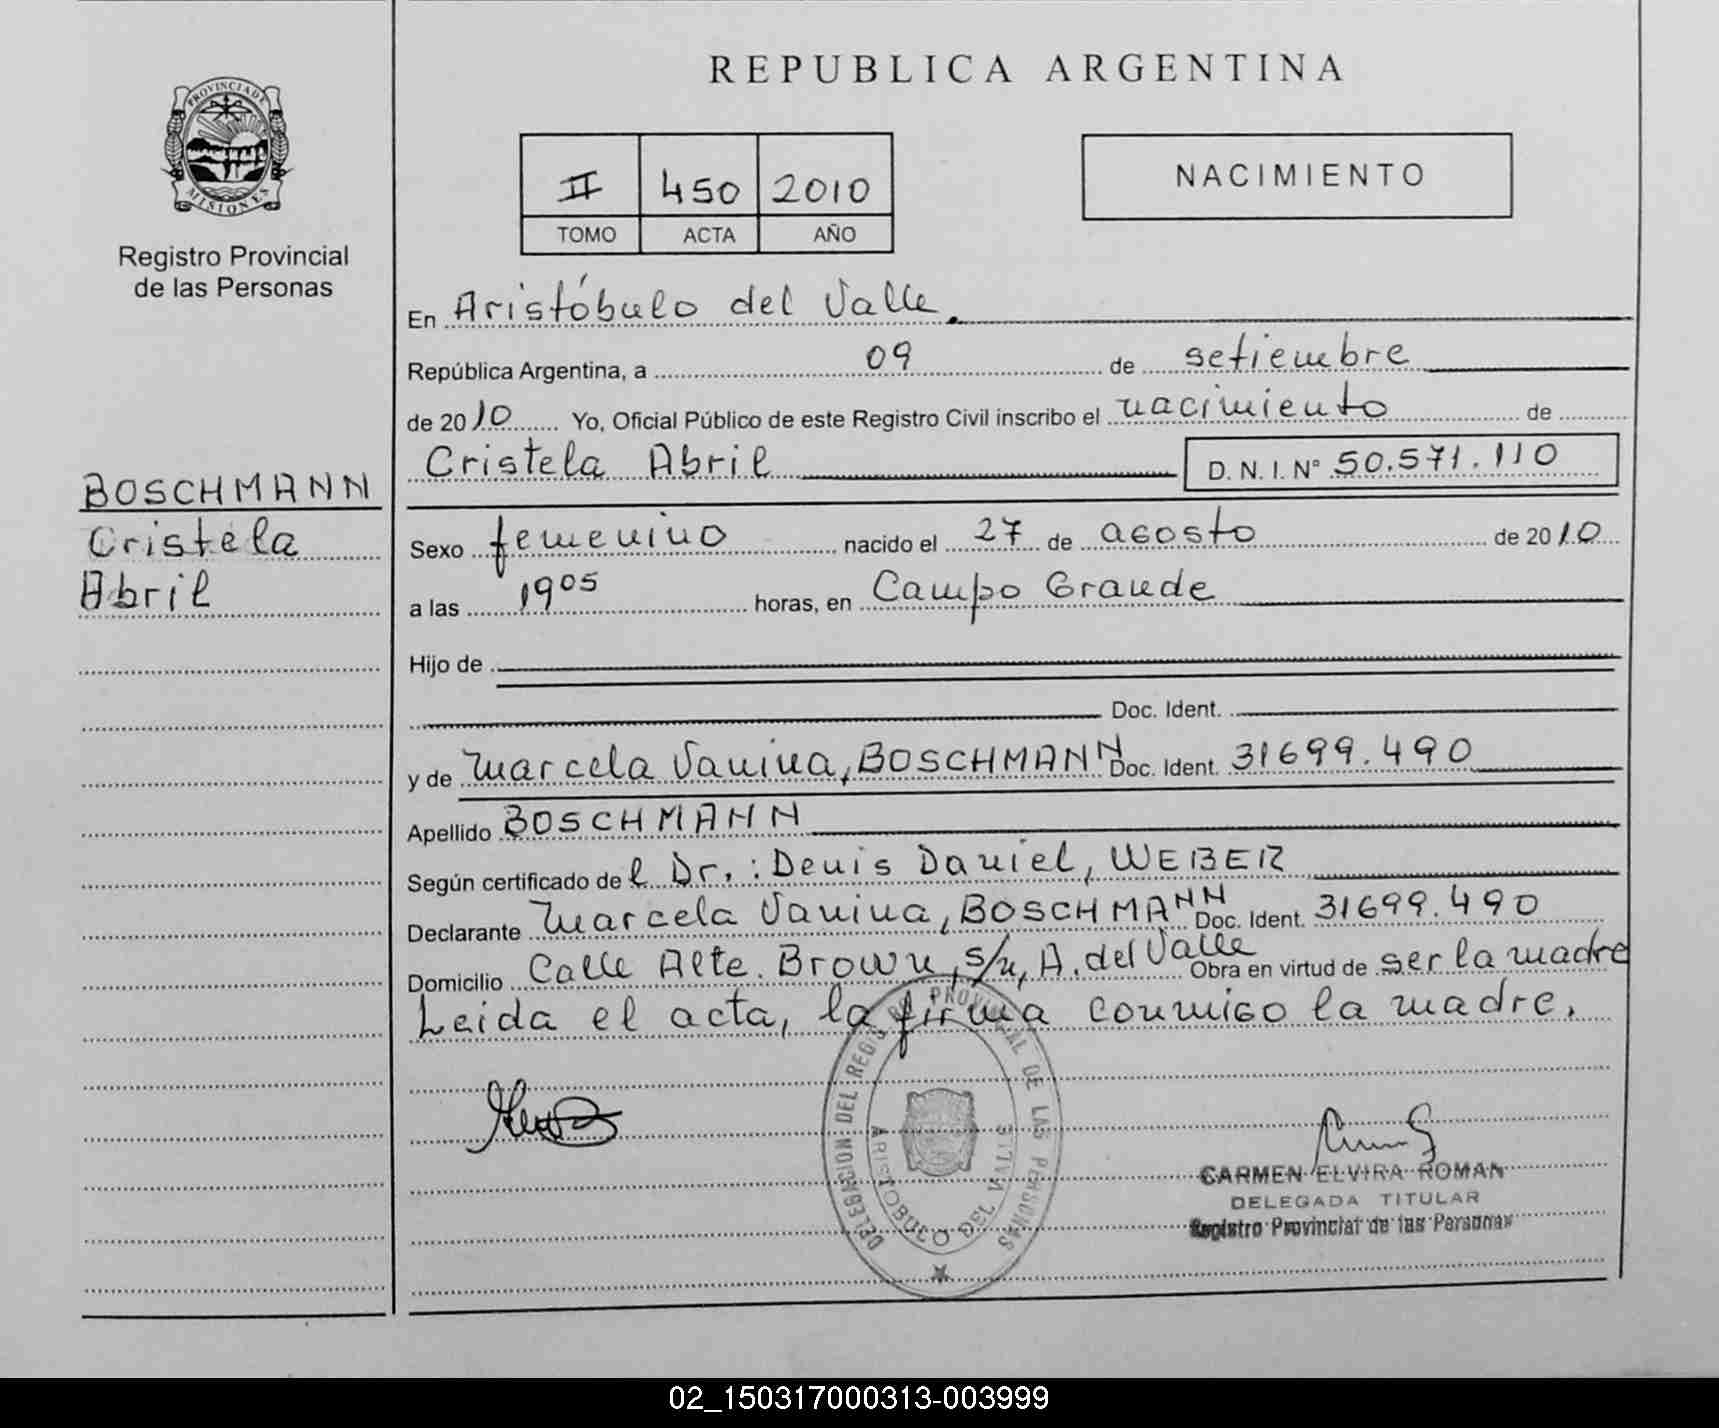 REPUBLICA ARGENTINA
PROVINCIA DE
MISIONES
Registro Provincial
de las Personas
II 450 2010
TOMO ACTA AÑO
NACIMIENTO
BOSCHMANN
Cristela
Abril
En Aristóbulo del Valle.
República Argentina, a 09 de setiembre
de 2010 Yo, Oficial Público de este Registro Civil inscribo el nacimiento de
Cristela Abril D. N. I. N° 50.571.110
Sexo femenino nacido el 27 de agosto de 2010
a las 1905 horas, en Campo Grande
Hijo de
Doc. Ident.
y de Marcela Vanina, BOSCHMANN Doc. Ident. 31699.490
Apellido BOSCHMANN
Según certificado del Dr.: Denis Daniel, WEBER
Declarante Marcela Vanina, BOSCHMANN Doc. Ident. 31699.490
Domicilio Calle Alte. Brown, s/n, A. del Valle Obra en virtud de ser la madre
Leida el acta, la firma conmigo la madre.
DELEGACION DEL REGISTRO PROVINCIAL DE LAS PERSONAS
ARISTOBULO DEL VALLE
CARMEN ELVIRA ROMAN
DELEGADA TITULAR
Registro Provincial de las Personas
02_150317000313-003999